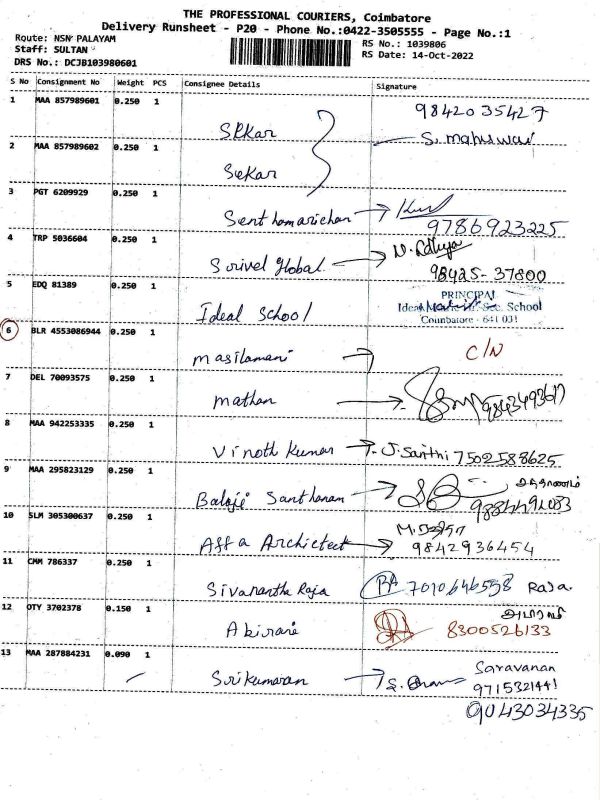 THE PROFESSIONAL COURIERS, Coimbatore
Delivery Runsheet - P20 - Phone No.:0422-3505555 - Page No.:1
Route: NSN PALAYAM
RS No.: 1039806
Staff: SULTAN
RS Date: 14-Oct-2022
DRS No.: DCJB103980601
S No Consignment No Weight PCS Consignee Details Signature
1 MAA 857989601 0.250 1 9842035427
Sekar
2 MAA 857989602 0.250 1 S. maheswari
Sekar
3 PGT 6209929 0.250 1
Senthamarichan 9786923225
4 TRP 5036604 0.250 1 N. Adhya
Sorivel Global 98425-37800
5 EDQ 81389 0.250 1 PRINCIPAL
Ideal School Ideal Matric Hr. Sec. School
Coimbatore - 641 031
6 BLR 4553086944 0.250 1
masilamani C/N
7 DEL 70093575 0.250 1
mathan 9843493617
8 MAA 942253335 0.250 1
Vinoth Kumar J. Santhi 7502588625
9 MAA 295823129 0.250 1
Balaji Santhanam சந்தானம்
9884491083
10 SLM 305300637 0.250 1
Affa Archictect 9842936454
11 CMM 786337 0.250 1
Sivanantha Raja 7010646558 Raja.
12 OTY 3702378 0.150 1 அபிராமி
Abirami 8300526133
13 MAA 287884231 0.090 1 Saravanan
Srikumaran 9715321441
9043034335